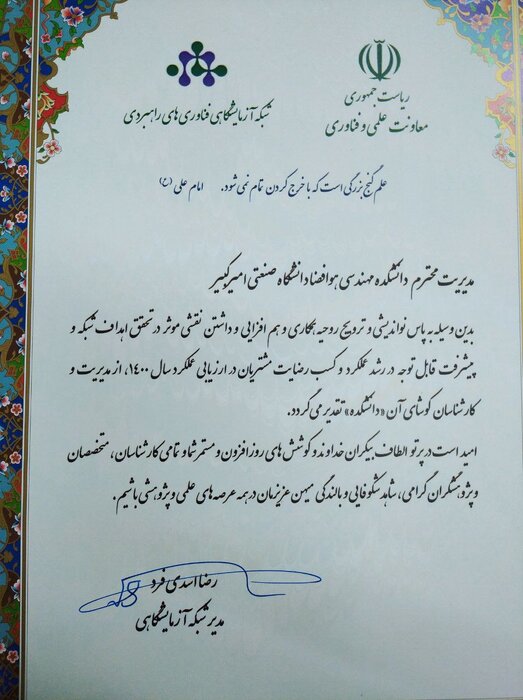 ریاست جمهوری
معاونت علمی و فناوری
شبکه آزمایشگاهی فناوری های راهبردی
علم گنج بزرگی است که با خرج کردن تمام نمی شود. امام علی (ع)
مدیریت محترم دانشکده مهندسی هوافضا دانشگاه صنعتی امیرکبیر
بدین وسیله به پاس نواندیشی و ترویج روحیه همکاری و هم افزایی و داشتن نقشی موثر در تحقق اهداف شبکه و
پیشرفت قابل توجه در رشد عملکرد و کسب رضایت مشتریان در ارزیابی عملکرد سال ۱۴۰۰، از مدیریت و
کارشناسان کوشای آن «دانشکده» تقدیر می گردد.
امید است در پرتو الطاف بیکران خداوند و کوشش های روزافزون و مستمر شما و تمامی کارشناسان، متخصصان
و پژوهشگران گرامی، شاهد شکوفایی و بالندگی میهن عزیزمان در همه عرصه های علمی و پژوهشی باشیم.
رضا اسدی فرد
مدیر شبکه آزمایشگاهی